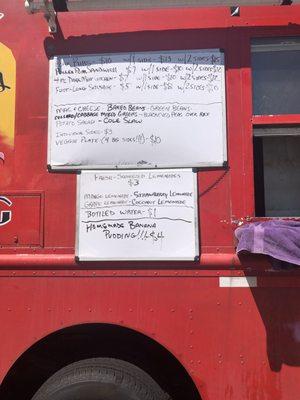 Pulled Pork Sandwich - $7 w/1 side - $10 w/2 sides - $12
Foot-Long Sausage - $5 w/1 side - $8 w/2 sides - $10
Mac & Cheese - Baked Beans - Green Beans
Collard/Cabbage Mixed Greens - Blackeyed Peas over Rice
Potato Salad - Cole Slaw
Individual Sides - $3
Veggie Plate (4 big sides!!!) - $10
Fresh-Squeezed Lemonades
$3
Mango Lemonade - Strawberry Lemonade
Grape Lemonade - Coconut Lemonade
Bottled Water - $1
Homemade Banana
Pudding!!! $4